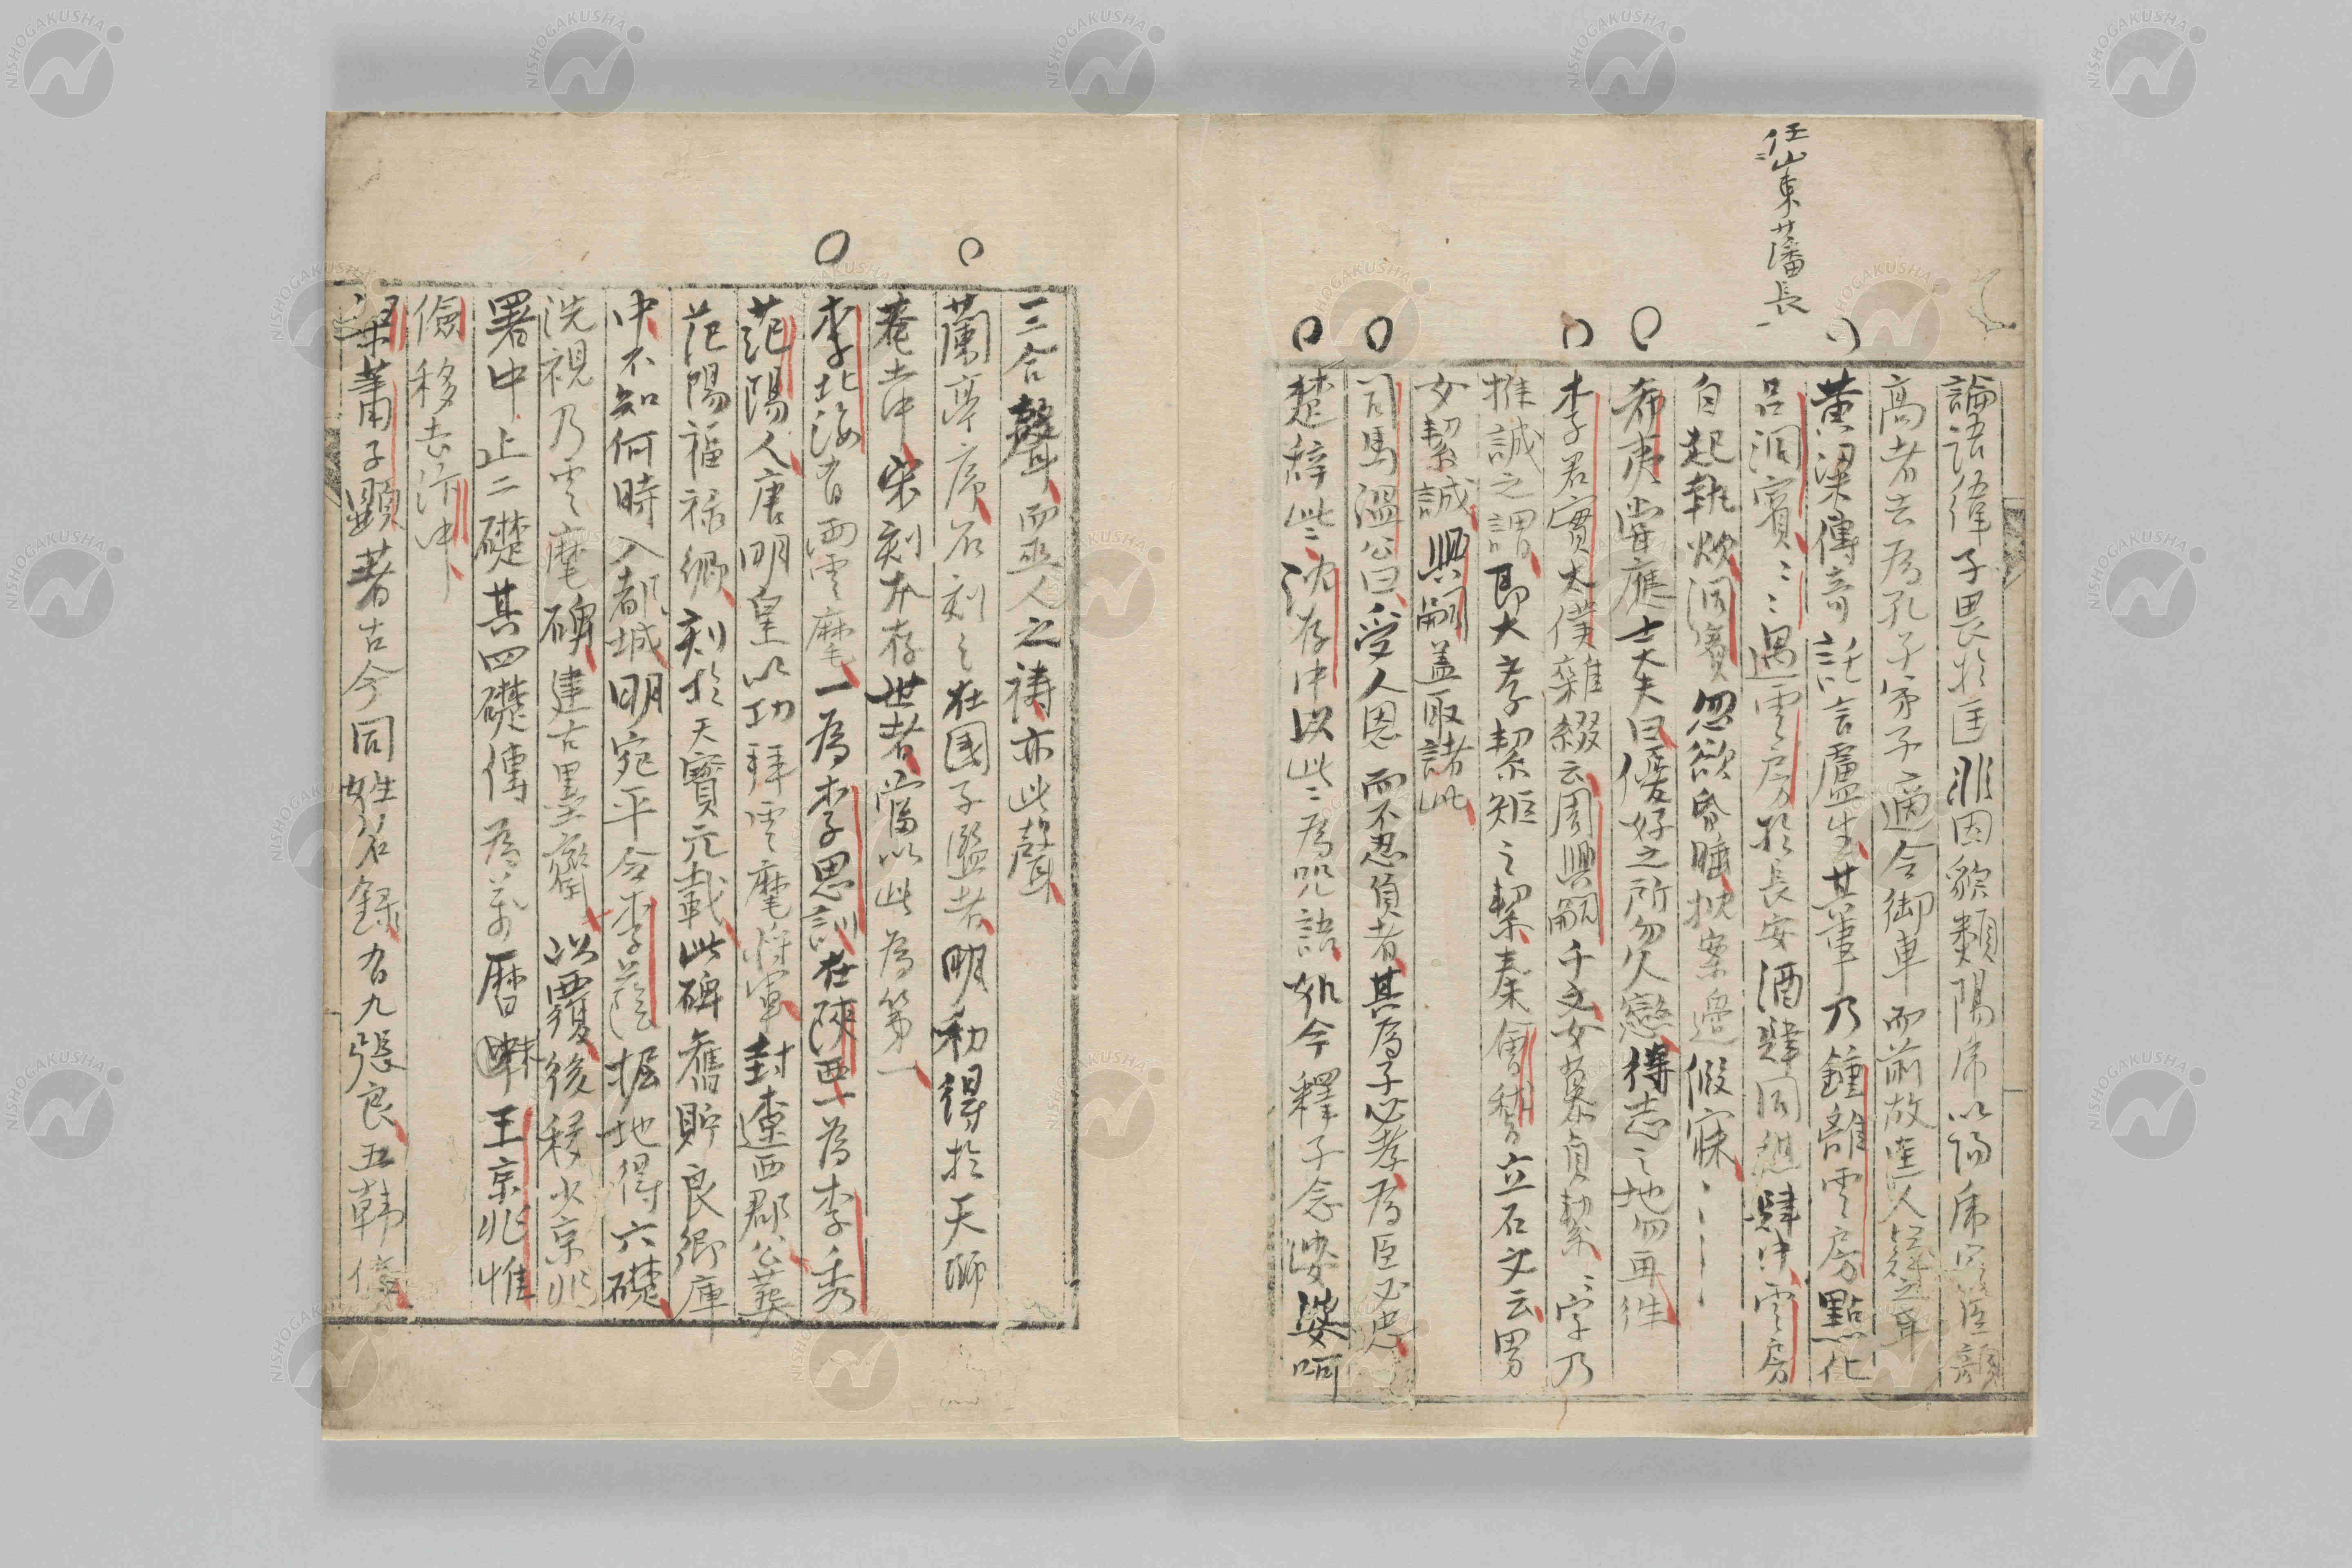 任山東藩長
論語緯子畏於匡非因貌類陽虎以陽虎　　匡顏
高者去為孔子弟子適今御車而前故匡人　之耳
黃梁傳奇託言盧生其事乃鍾離雲房點化
呂洞賓〻〻遇雲房於長安酒肆同憩肆中雲房
自起執炊洞賓忽欲昏睡枕案邊假寐
希夷嘗應士大夫曰優好之所勿久戀得志之地勿再往
李君實太僕雜綴云周興嗣千文女慕貞絜〻字乃
推誠之謂即大孝絜矩之絜秦會稽立石文云男
女絜誠興嗣蓋取諸此
司馬溫公曰受人恩而不忍負者其為子必孝為臣必忠
楚辭些〻沈存中以些〻為咒語如今釋子念娑婆呵
三合聲而巫人之禱亦此聲
蘭亭序石刻之在國子監者明初得於天師
菴土中宋刻本存世者當以此為第一
李北海有兩雲麾一為李思訓在陝西一為李秀
范陽人唐明皇以功拜雲麾將軍封遼西郡公葬
范陽福祿鄉刻於天寶元載此碑舊貯良鄉庫
中不知何時入都城明宛平令李蔭掘地得六礎
洗視乃雲麾碑建古墨齋以覆後移少京兆
署中止二礎其四礎傳為萬曆末王京兆惟
儉移去汴中
梁蕭子顯著古今同姓名錄有九張良五韓信